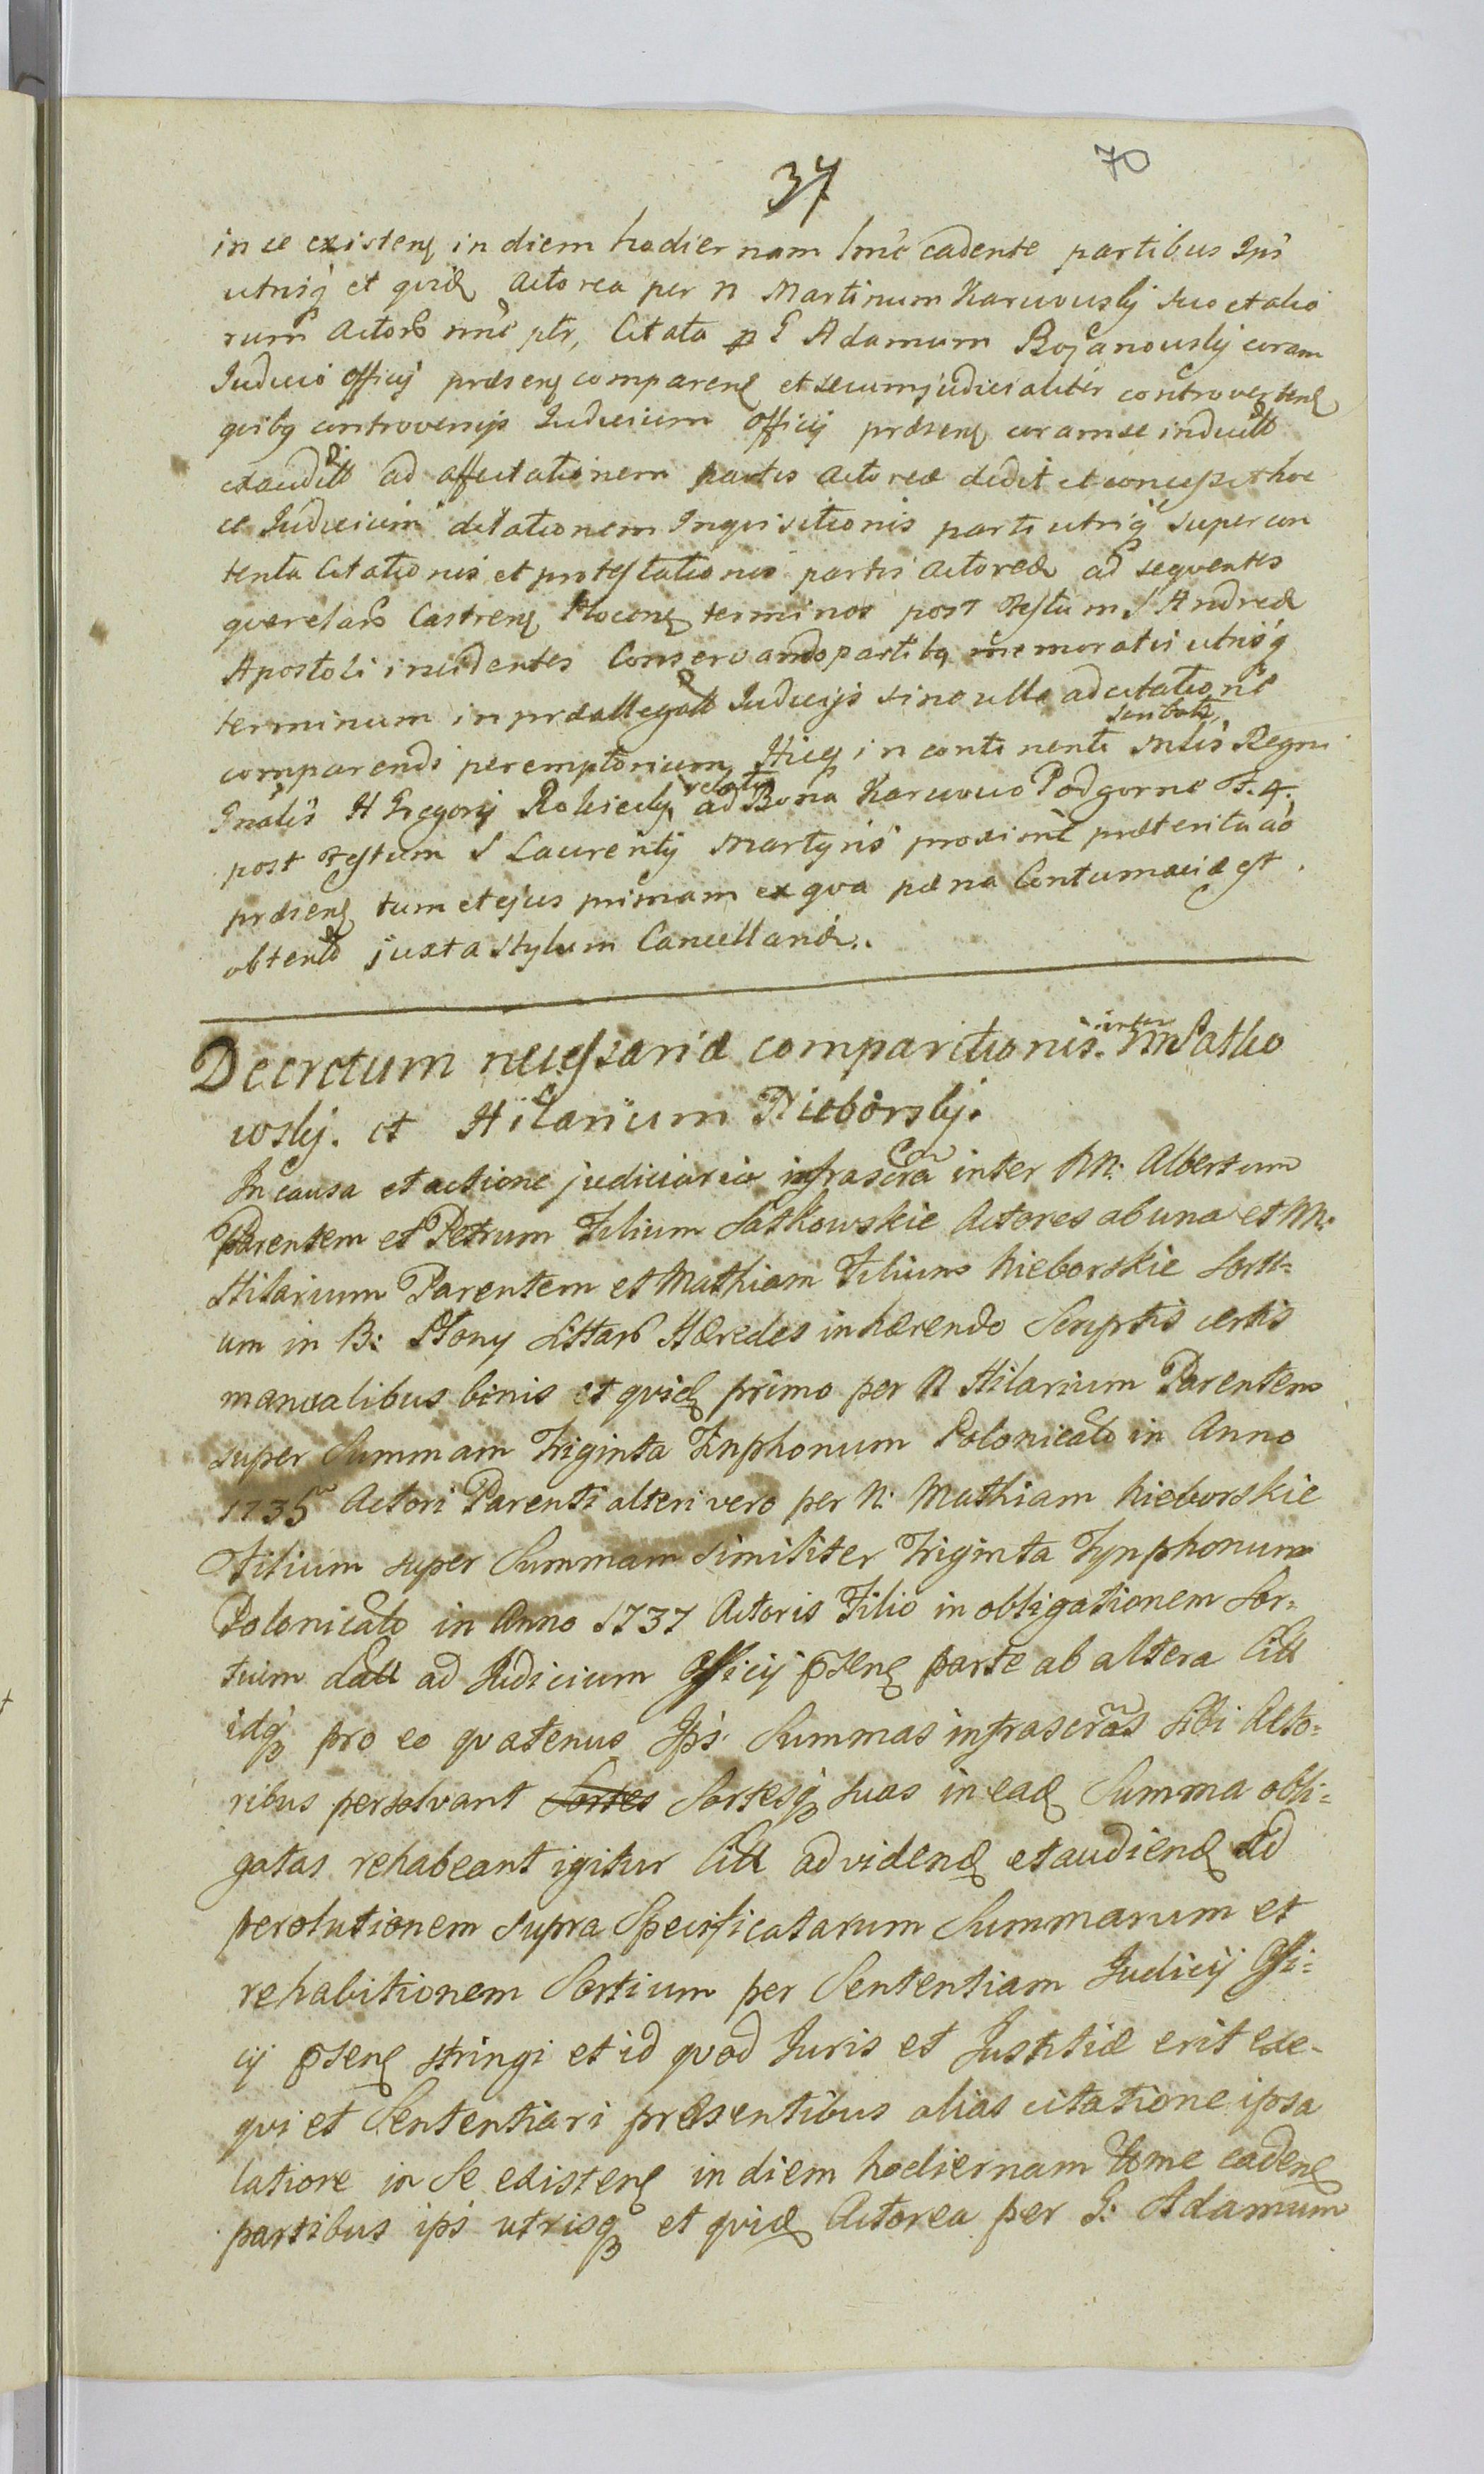 37
70
in se existen in diem hodiernam hinc cadente partibus Ips
utrisq et quid Actorea per N Martinum Karwowsky suo et alio
rum Actorũ nne ptr, Citata p G Adamum Bojanowsky coram
Judicio Officij præsen comparen et secum judicialiter controverten
quibq controversijs Judicium Officij præsen coram se induct
exaudit ad affectationem partis Actoreæ dedit et concessit hoc
ce Judicium dilationem Inquisitionis parti utriq super con
tenta Citationis et protestationis partis Actoreæ ad sequentes
querelarũ Castren Plocen terminos post Festum S Andreæ
Apostoli incidentes Conservando partibq memoratis utrisq
terminum in præallegatt Judicijs sine ulla adcitatione
comparendi peremptorium Hicq in continenti Mtis Regni
scribatr
Gnalis H Gregorij Rokicky relatio ad Bona Karwowo Podgorne F. 4.
post Festum S Laurentij Martyris proxime præterita ad
præsen tum et ejus primam ex qua pæna Contumaciæ est
obtent juxta stylum Cancellariæ.
Decretum necessariæ comparitionis. inter NN Satko
wsky. et Hilarium Nieborsky.
In causa et actione judiciaria infrascra inter NN: Albertum
Parentem et Petrum Filium Satkowskie Actores ab una et N.
Hilarium Parentem et Mathiam Filium Nieborskie Sorti-
um in B: Stony Sittarũ Hæredes inhærendo Scriptis certis
manualibus binis et quid primo per N Hilarium Parentem
super Summam Triginta Tynphonum Polonicalũ in Anno
1735 Actori Parenti alteri vero per N: Mathiam Nieborskie
Filium super Summam similiter Triginta Tynphonum
Polonicalũ in Anno 1737 Actoris Filio in obligationem Sor-
tium datt ad Judicium Officij psen parte ab altera Citt
idq pro eo quatenus Ips Summas infrascras Sibi Acto-
ribus persolvant Sortes Sortesq suas in ead Summa obli-
gatas rehabeant igitur Citt ad viden et audien ad
persolutionem supra Specificatarum Summarum et
rehabitionem Sortium per Sententiam Judicij Offi-
cij psen stringi et id quod Juris et Justitiæ erit exe-
qui et Sententiari præsentibus alias citatione ipsa
latiore in Se existen in diem hodiernam Hinc caden
partibus ips utrisq et quid Actorea per G: Adamum